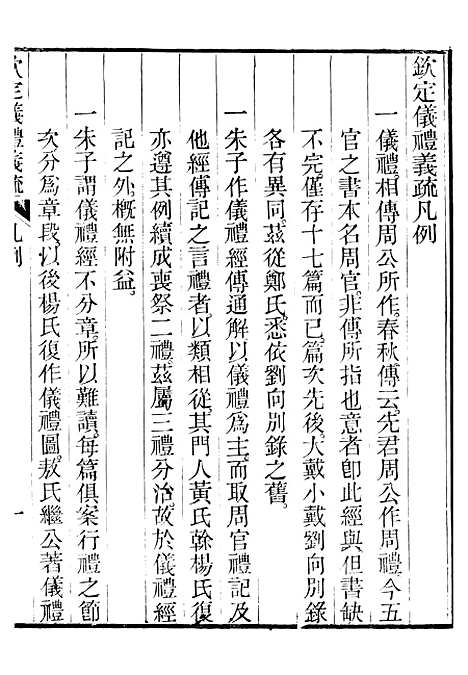 欽定儀禮義疏凡例
一儀禮相傳周公所作。春秋傳云。先君周公作周禮今五
官之書本名周官。非傳所指也意者卽此經與但書缺
不完僅存十七篇而已。篇次先後。大戴小戴劉向別錄
各有異同。茲從鄭氏。悉依劉向別錄之舊。
一朱子作儀禮經傳通解以儀禮爲主。而取周官禮記及
他經傳記之言禮者。以類相從。其門人黃氏榦楊氏復
亦遵其例續成喪祭二禮。茲屬三禮分治。故於儀禮經
記之外。概無附益。
一朱子謂儀禮經不分章。所以難讀。每篇俱案行禮之節
次分爲章段。以後楊氏復作儀禮圖。敖氏繼公著儀禮
欽定儀禮義疏 凡例 一